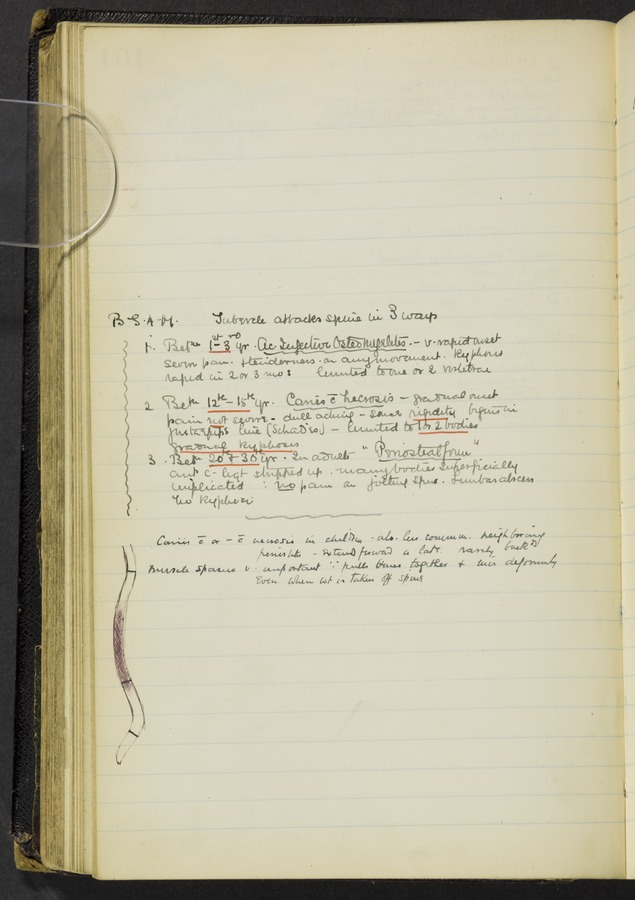 B.G.A.H. Tubercle attacks spine in 3 ways
1. Betn 1st-3rd yr. Ac. Infective Osteomyelitis. - v. rapid onset
severe pain. & tenderness. on any movement. Kyphosis
rapid in 2 or 3 mos limited to one or 2 vertebrae
2 Betn 12th-15th yr. Caries c̄ necrosis - gradual onset
pain not severe - dull aching - some rigidity begins in
line - limited to 1 or 2 bodies
gradual kyphosis
3. Betn 20 & 30 yr. In adult "Periosteal form"
ant c. ligt stripped up. many bodies superficially
implicated ∴ no pain on jolting spine. lumbar abscess
no kyphosis
Caries c̄ or - c̄ necrosis in children - abs. less common. neighbouring
- extend forward or lat. rarely backwd
Muscle spasm v. important ∵ pulls bones together & incs deformity
Even when wt is taken off spine